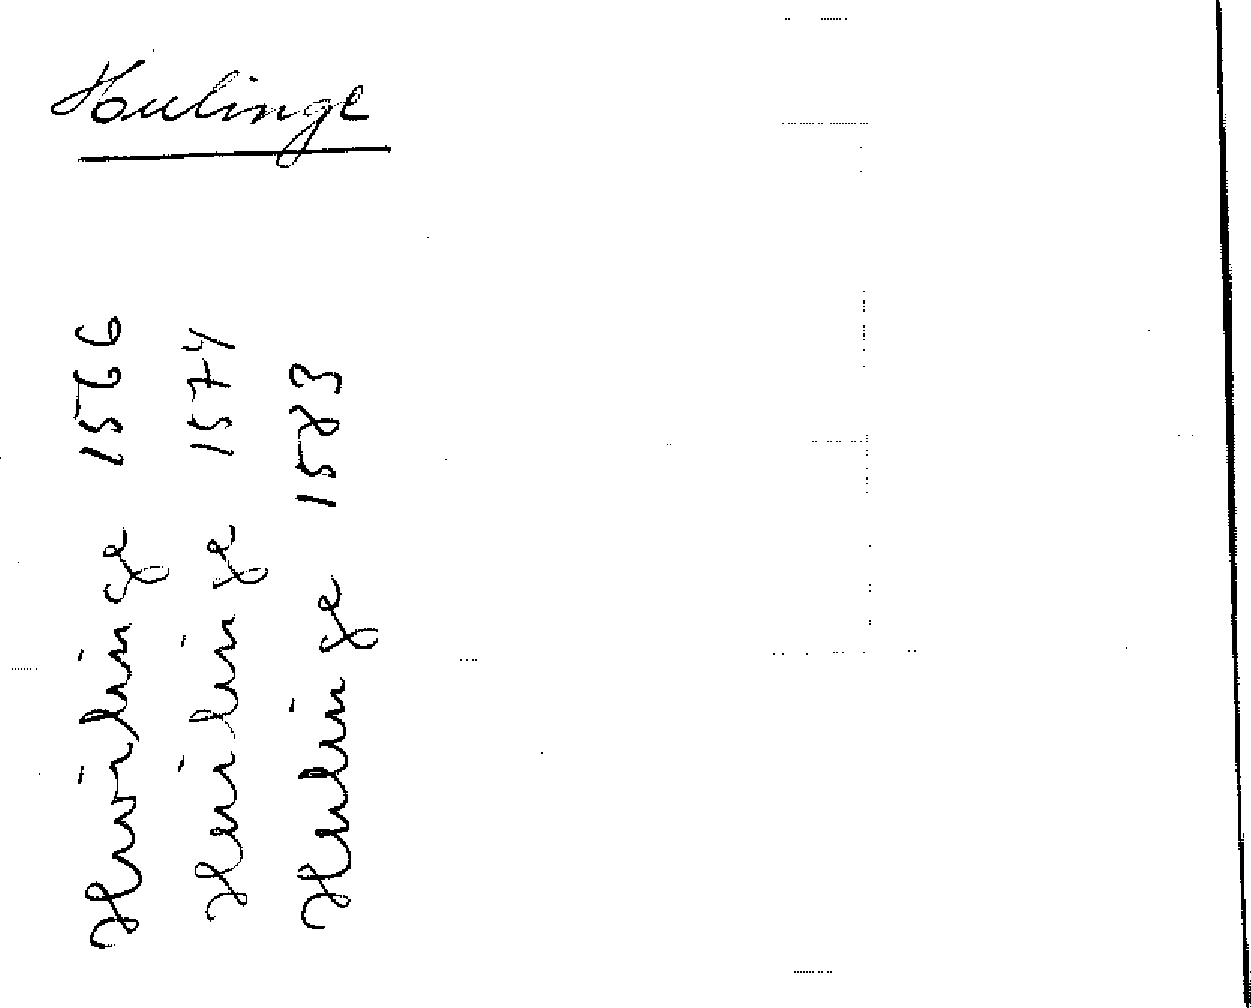 Houlinge
Huvilinge 1566
Heuilinge 1574
Heulinge 1583